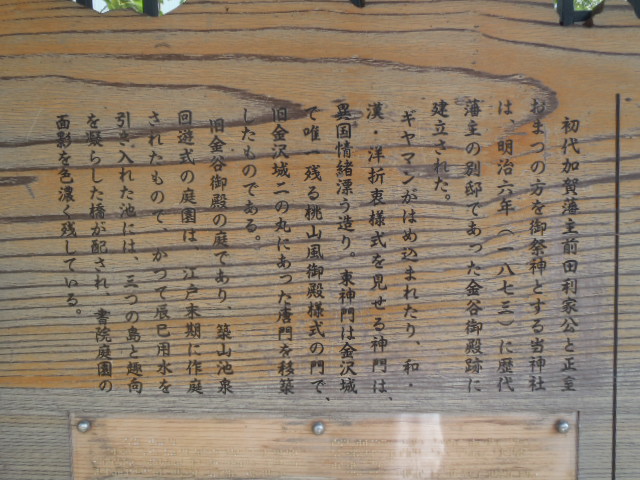 初代加賀藩主前田利家公と正室
おまつの方を御祭神とする当神社
は、明治六年(一八七三)に歴代
藩主の別邸であった金谷御殿跡に
建立された。
ギヤマンがはめ込まれたり、和・
漢・洋折衷様式を見せる神門は、
異国情緒漂う造り。東神門は金沢城
で唯一残る桃山風御殿様式の門で、
旧金沢城二の丸にあった唐門を移築
したものである。
旧金谷御殿の庭であり、築山池泉
回遊式の庭園は、江戸末期に作庭
されたもので、かつて辰巳用水を
引き入れた池には、三つの島と趣向
を凝らした橋が配され、書院庭園の
面影を色濃く残している。